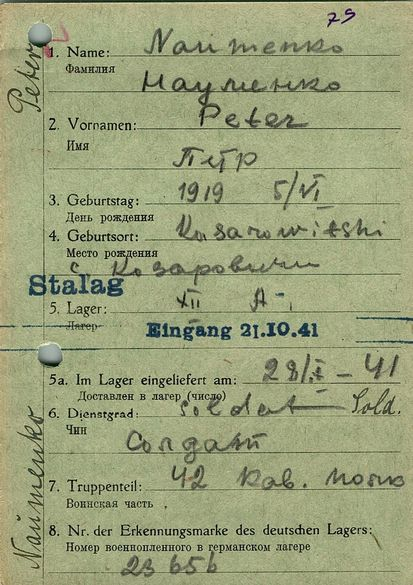 79
1. Name: Naumenko
Фамилия
Науменко
2. Vornamen: Peter
Имя
Петр
3. Geburtstag: 1919 5/VI
День рождения
4. Geburtsort: Kosarowitshi
Место рождения
с Козаровичи
Stalag
5. Lager: XII A
Лагер
Eingang 21.10.41
5a. Im Lager eingeliefert am: 28/X-41
Доставлен в лагер (число)
6. Dienstgrad: Soldat Sold.
Чин
Солдат
7. Truppenteil: 42 кав. полк
Воинская часть
8. Nr. der Erkennungsmarke des deutschen Lagers:
Номер военнопленного в германском лагере
23656
Naumenko Peter